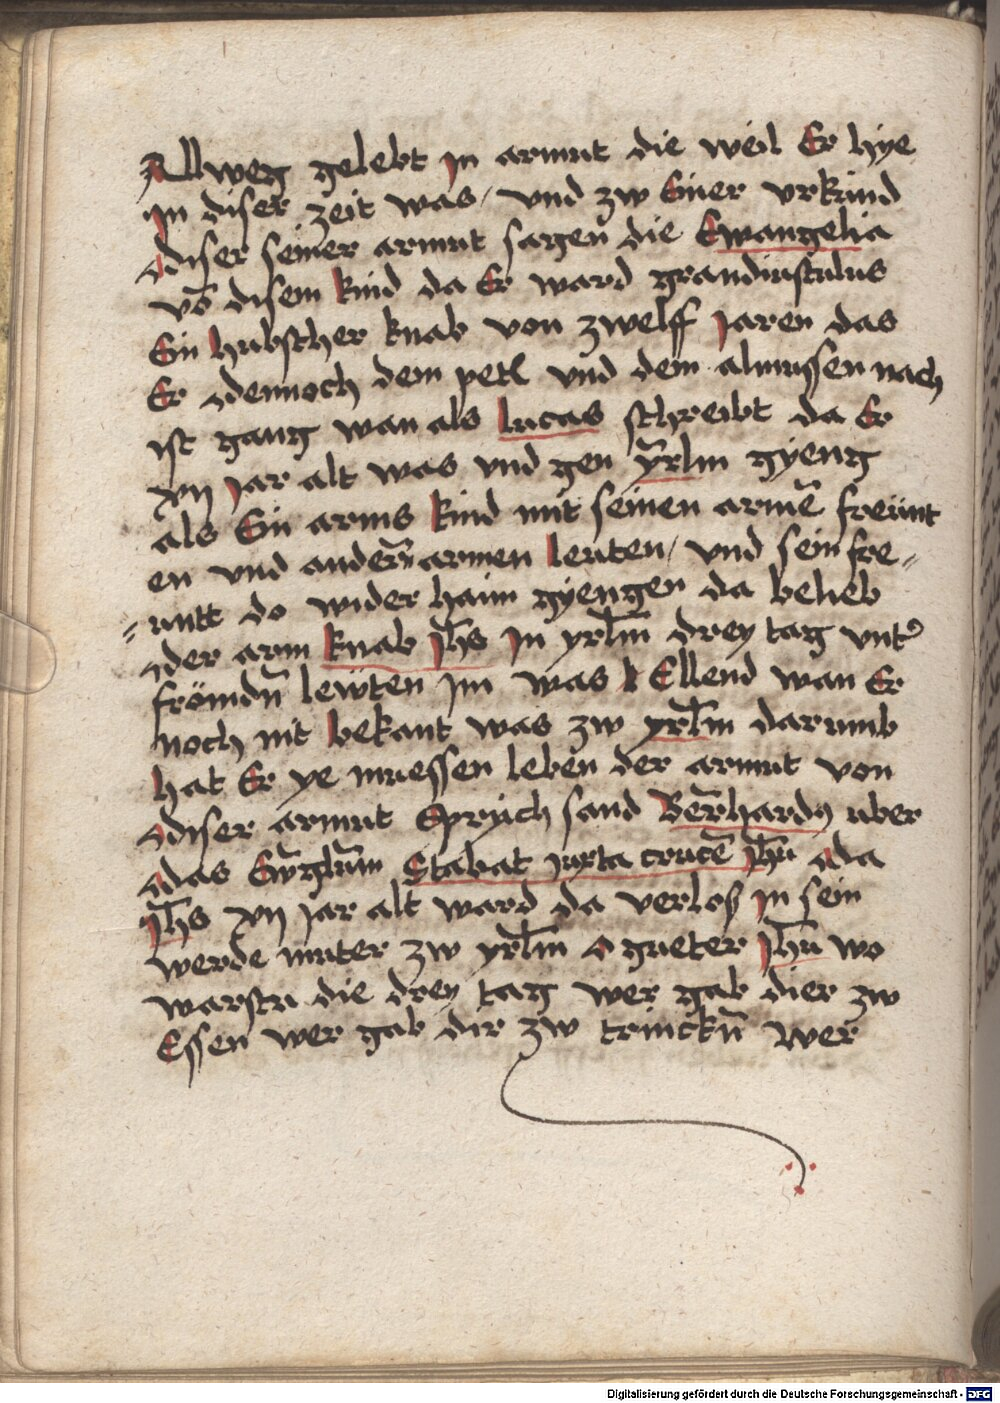 Allweg gelebt Jn armut die weil Er hye
Jn diser zeit was / vnd zw Einer vrkund
diser seiner armut sagen die Ewangelia
vō disem kind da Er ward grandiusculus
Ein hubscher knab von zwelff Jaren das
Er dennoch dem petl vnd dem almussen nach
ist gang wan als lucas schreibt da Er
xij Jar alt was vnd gen yr̄lm gyeng
als Ein arms kind mit seinen armē freünt
en vnd andern̄ armen leuten / vnd sein fre„
„untt do wider haim gyengen da belieb
der arm knab Jh̄s Jn yrl̄m drey tag vnt'
frömdn̄ lewten Jm was Ellend wan Er
noch nit bekant was zw yrl̄m darumb
hat Er ye muessen leben der armut von
diser armut Sprÿch sand Ber̄hardꝰ uber
das Ew̄glūm Stabat juxta crucē Jh̄u da
Jh̄s xij Jar alt ward da verlos Jn sein
werde muter zw yrl̄m O gueter Jh̄u wo
warstu die drey tag wer gab dier zw
Essen wer gab dir zw trinckn̄ Wer
Digitalisierung gefördert durch die Deutsche Forschungsgemeinschaft - DFG